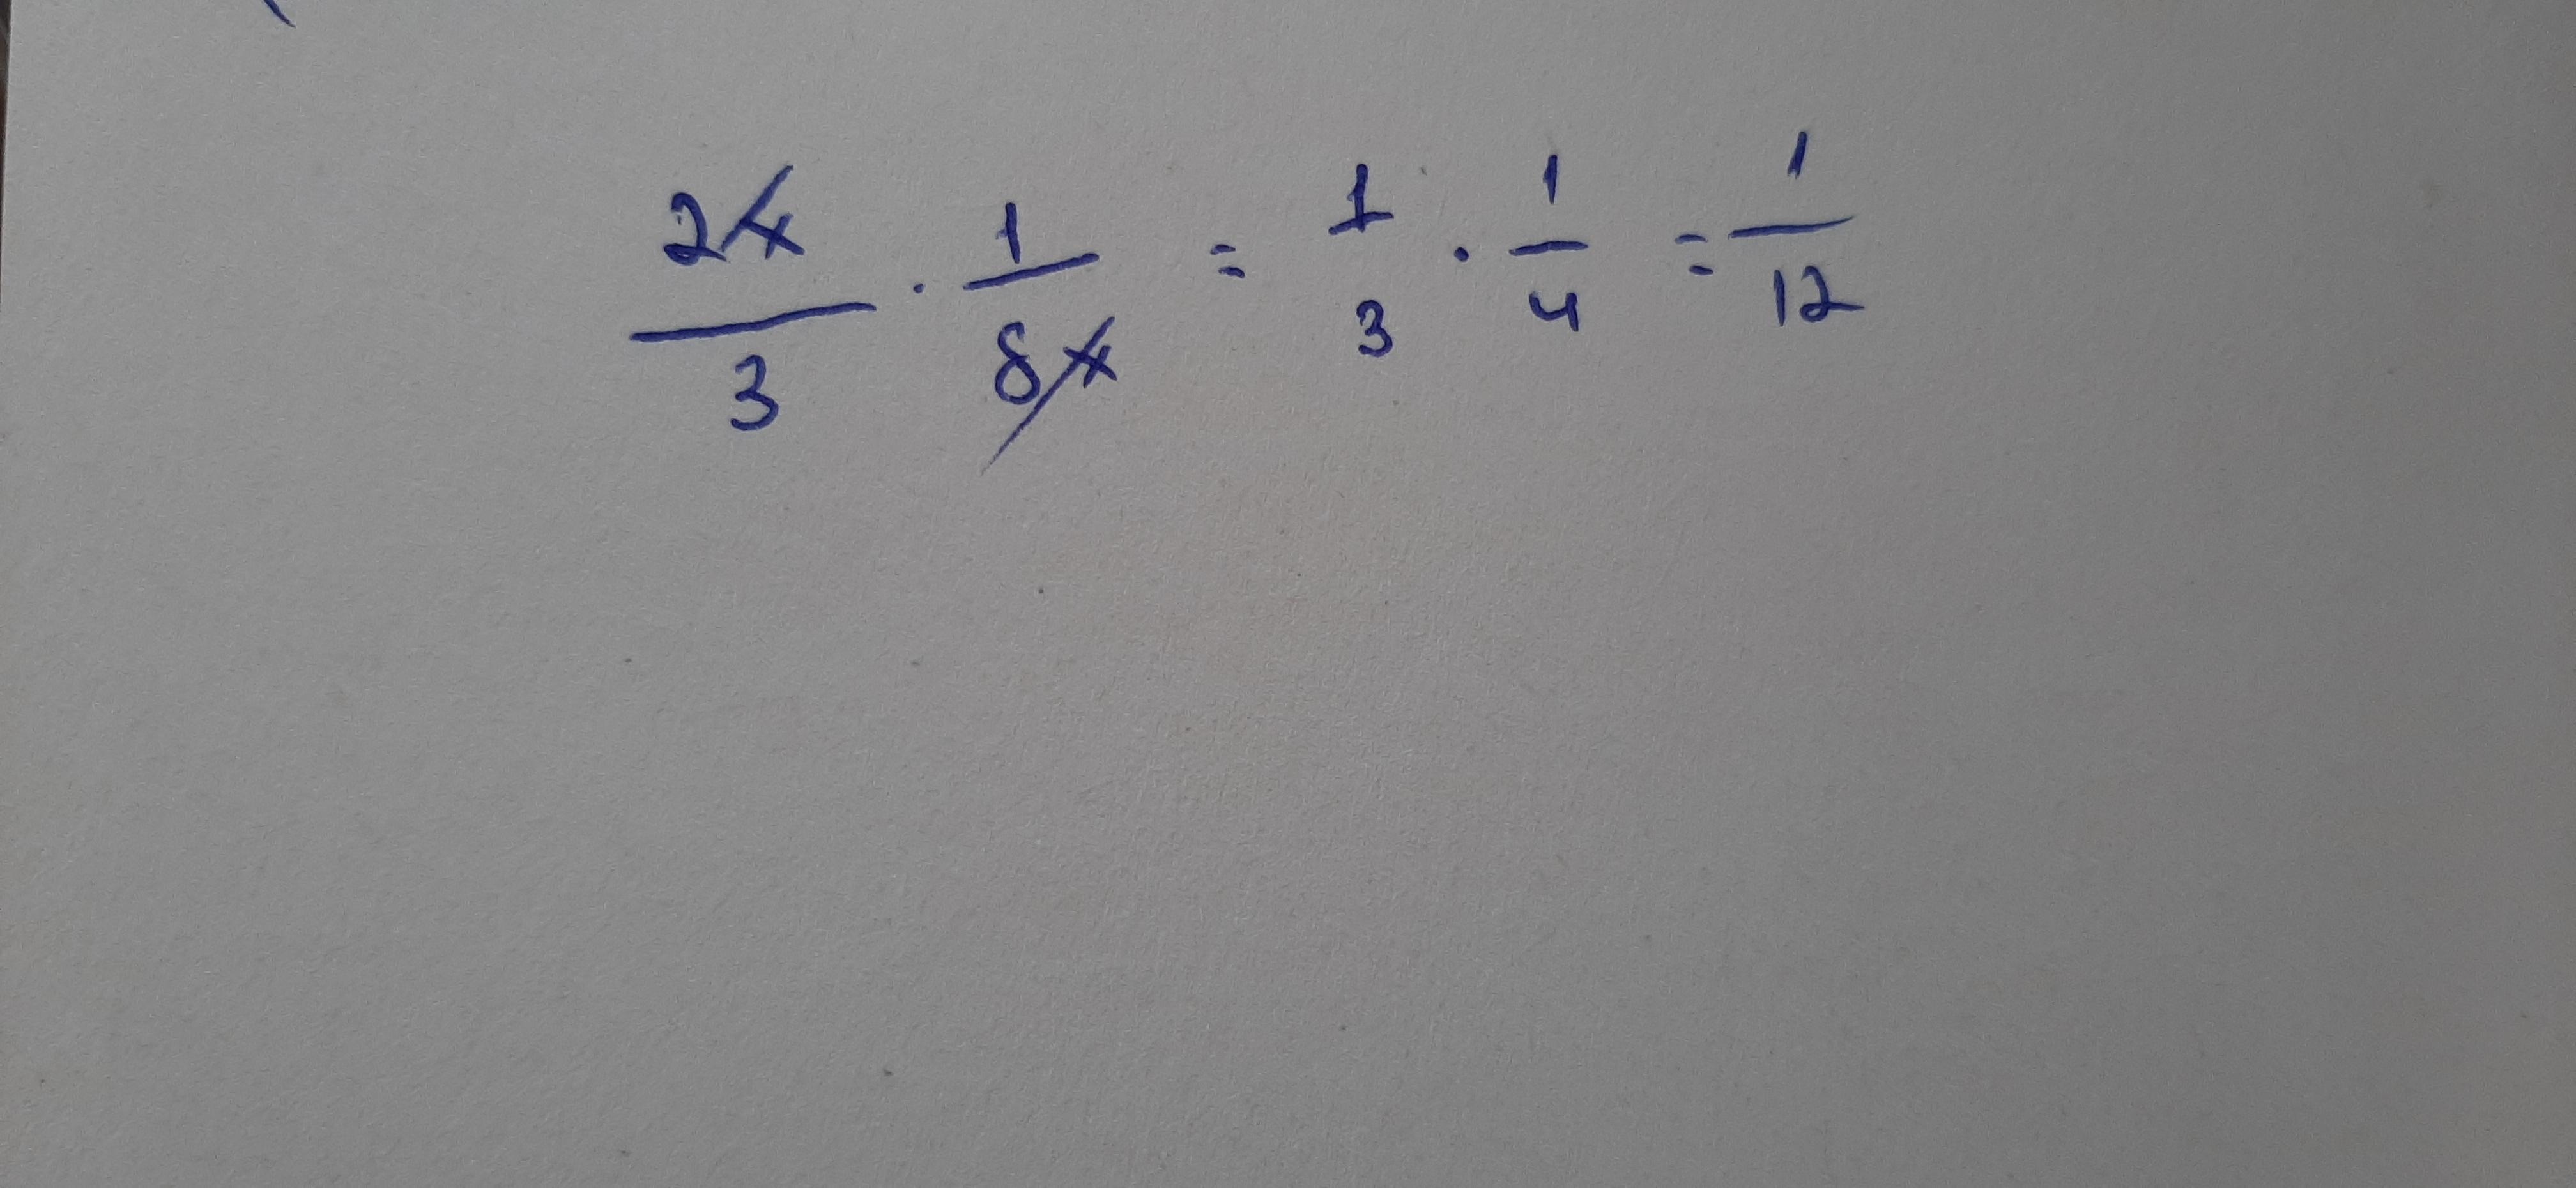 2x/3 · 1/8x = 1/3 · 1/4 = 1/12